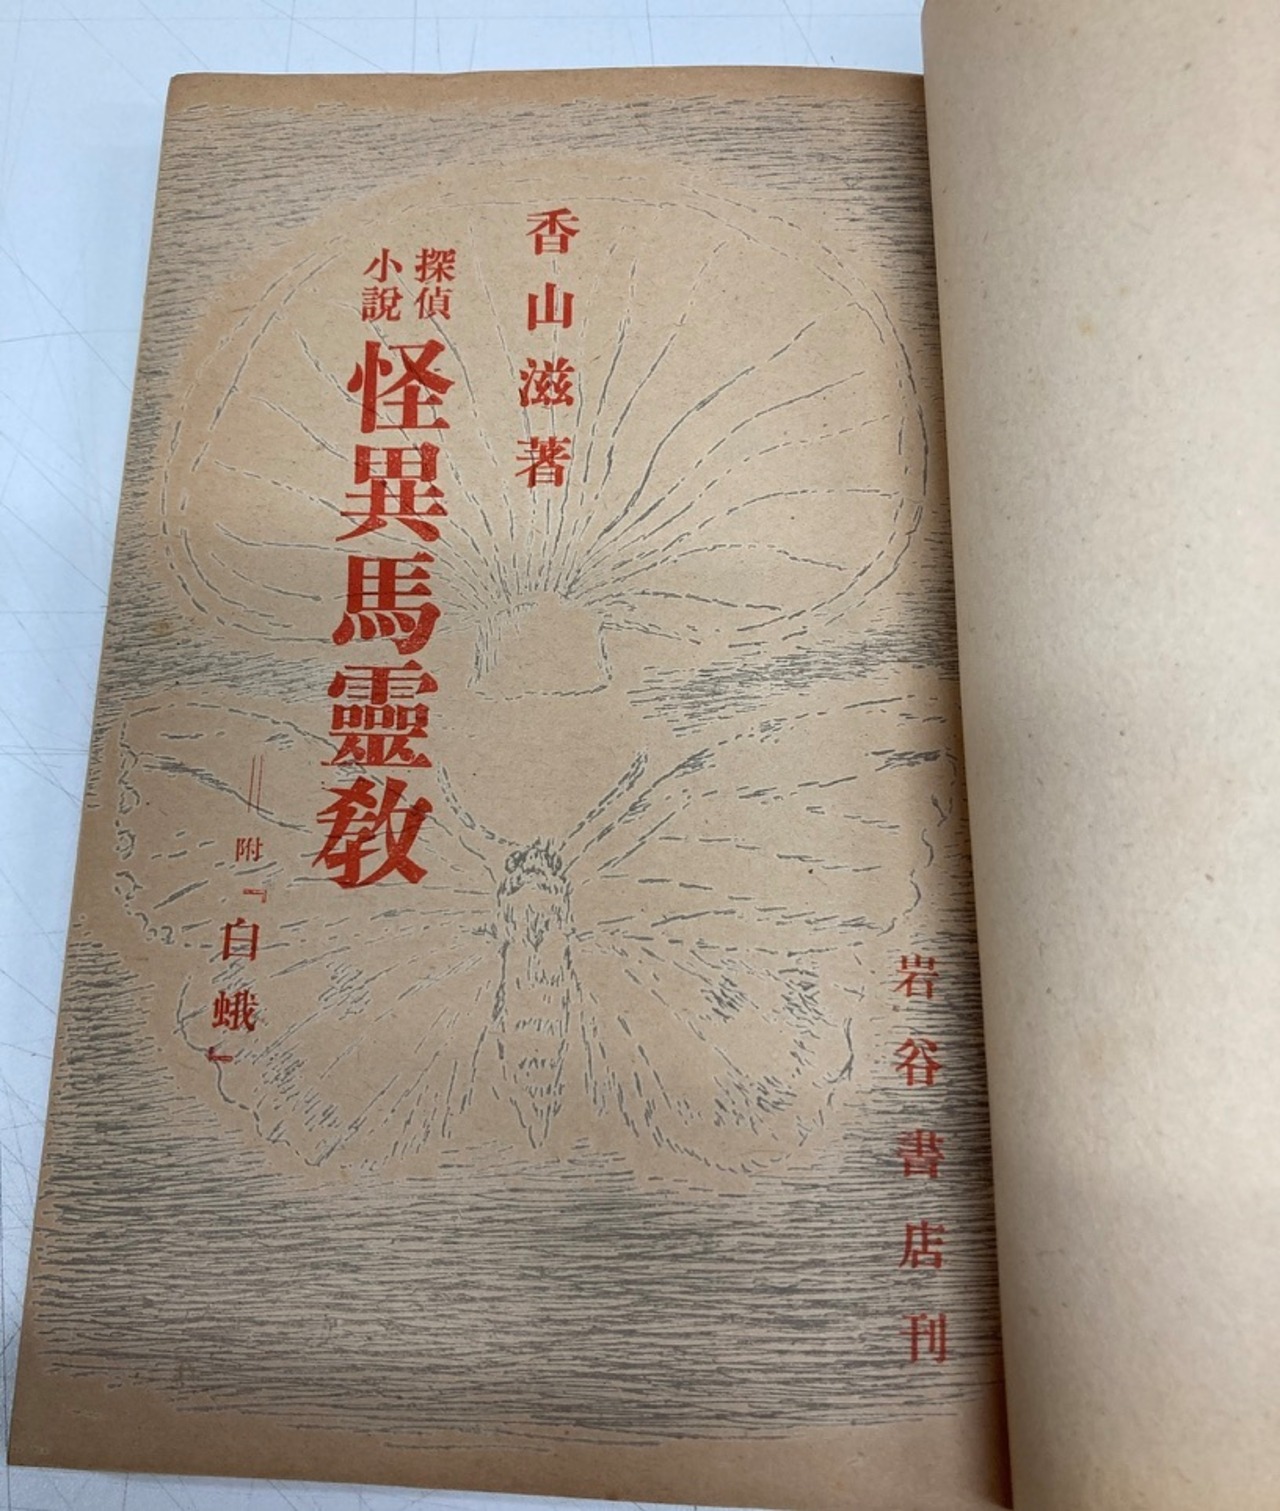 香山滋著
探偵
小說
怪異馬靈教
附『白蛾』
岩谷書店刊